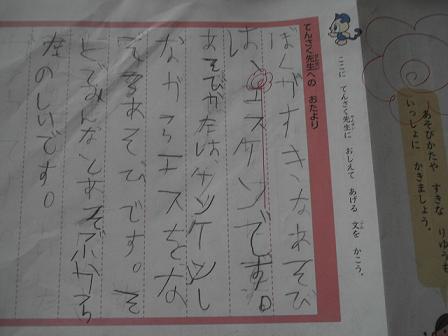 あそびかたや すきな りゆう
いっしょに かきましょう。
ここに てんさく先生に おしえて あげる 文を かこう。
てんさく先生への おたより
ぼくがすきなあそび
は、エスケンです。
あそびかたはケンケンし
ながらエスをな
あそびです。そ
とでみんなとあそぶから
たのしいです。